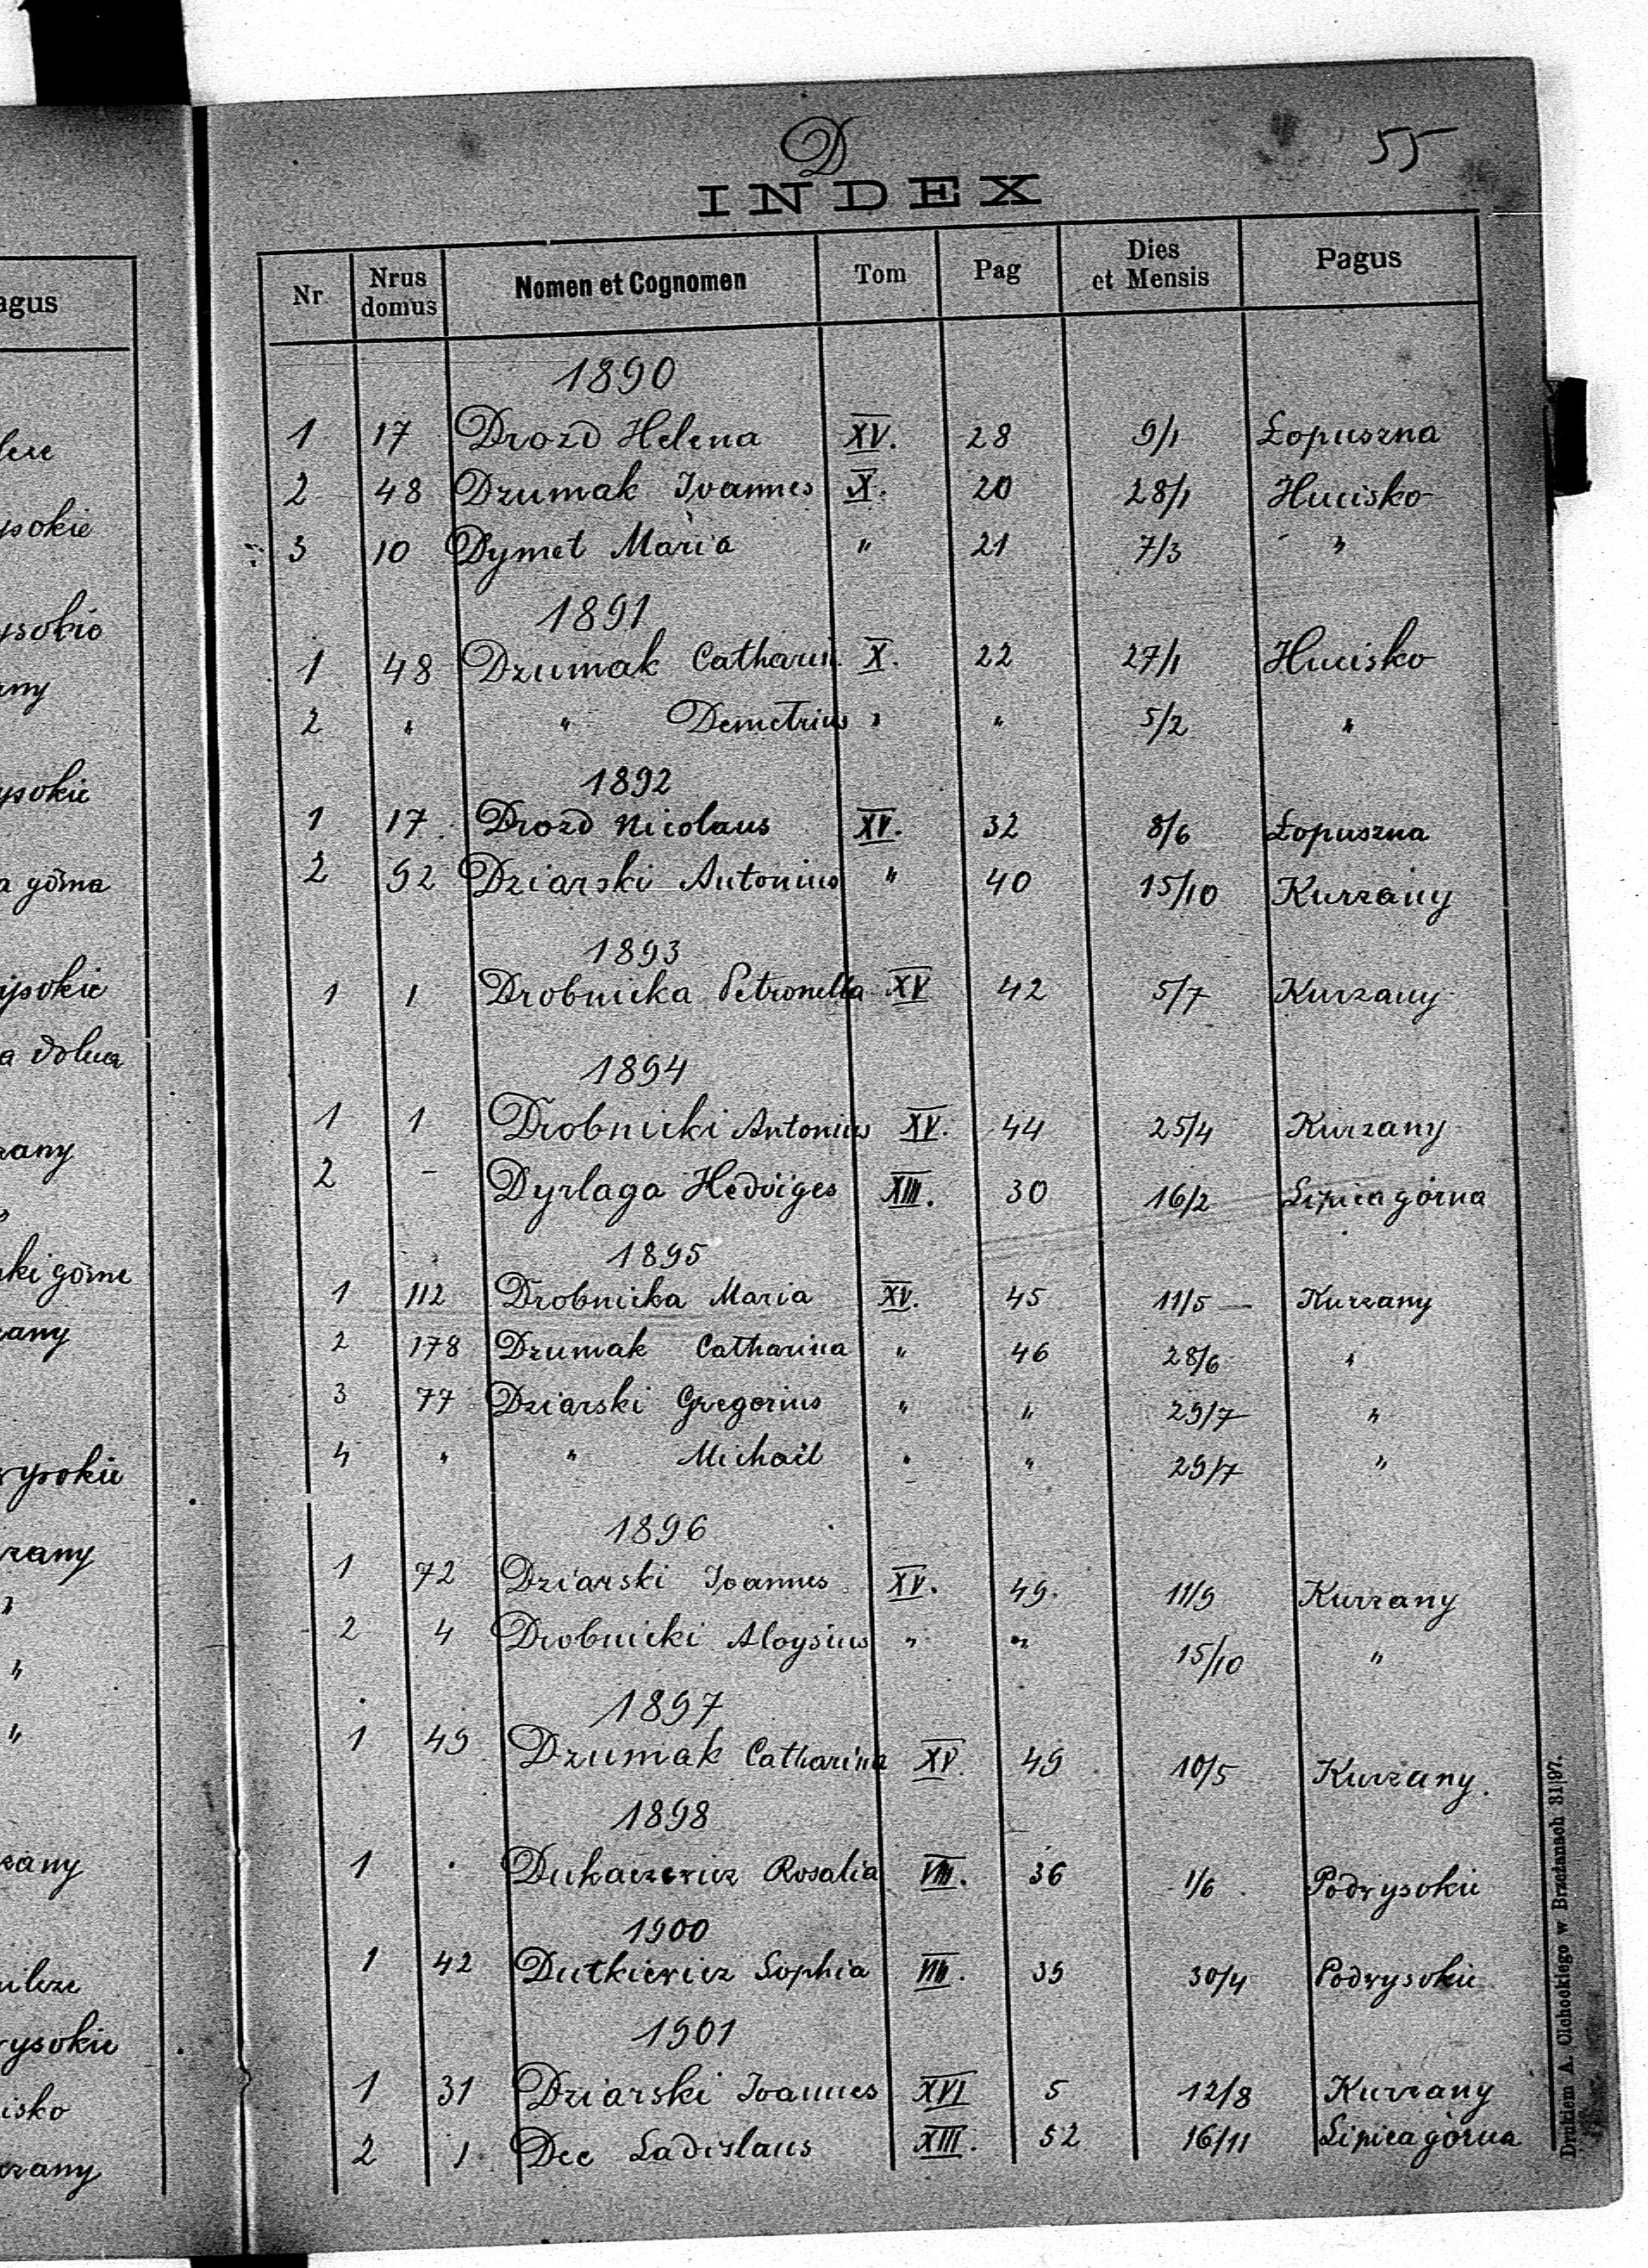 D
55
INDEX
Nr Nrus domus Nomen et Cognomen Tom Pag Dies et Mensis Pagus
1890
1 17 Drozd Helena XV. 28 9/1 Łopuszna
2 48 Dzumak Ioannes X. 20 28/1 Hucisko
3 10 Dymet Maria " 21 7/3 "
1891
1 48 Dzumak Catharin. X. 22 27/1 Hucisko
2 " " Demetrius " " 5/2 "
1892
1 17 Drozd Nicolaus XV. 32 8/6 Łopuszna
2 92 Dziarski Antonius " 40 15/10 Kurzany
1893
1 1 Drobnicka Petronella XV 42 5/7 Kurzany
1894
1 1 Drobnicki Antonius XV. 44 25/4 Kurzany
2 - Dyrlaga Hedviges XIII. 30 16/2 Lipica górna
1895
1 112 Drobnicka Maria XV. 45 11/5 Kurzany
2 178 Dzumak Catharina " 46 28/6 "
3 77 Dziarski Gregorius " " 29/7 "
4 " " Michaël " " 29/7 "
1896
1 72 Dziarski Joannes XV. 49. 11/9 Kurzany
2 4 Drobnicki Aloysius " " 15/10 "
1897
1 49 Dzumak Catharina XV. 49 10/5 Kurzany.
1898
1 . Dukaczewicz Rosalia VIII. 36 1/6 Podwysokie
1900
1 42 Dutkiewicz Sophia VIII. 39 30/4 Podwysokie
1901
1 31 Dziarski Ioannes XVI 5 12/8 Kurzany
2 1 Dec Ladislaus XIII. 52 16/11 Lipica górna
Drukiem A. Olchockiego w Brzeżanach 31|97.
agus
ysokie
any
ysokie
a górna
a dolna
zany
ki górne
zany
wysokie
rzany
"
"
zany
ysokie
isko
rzany